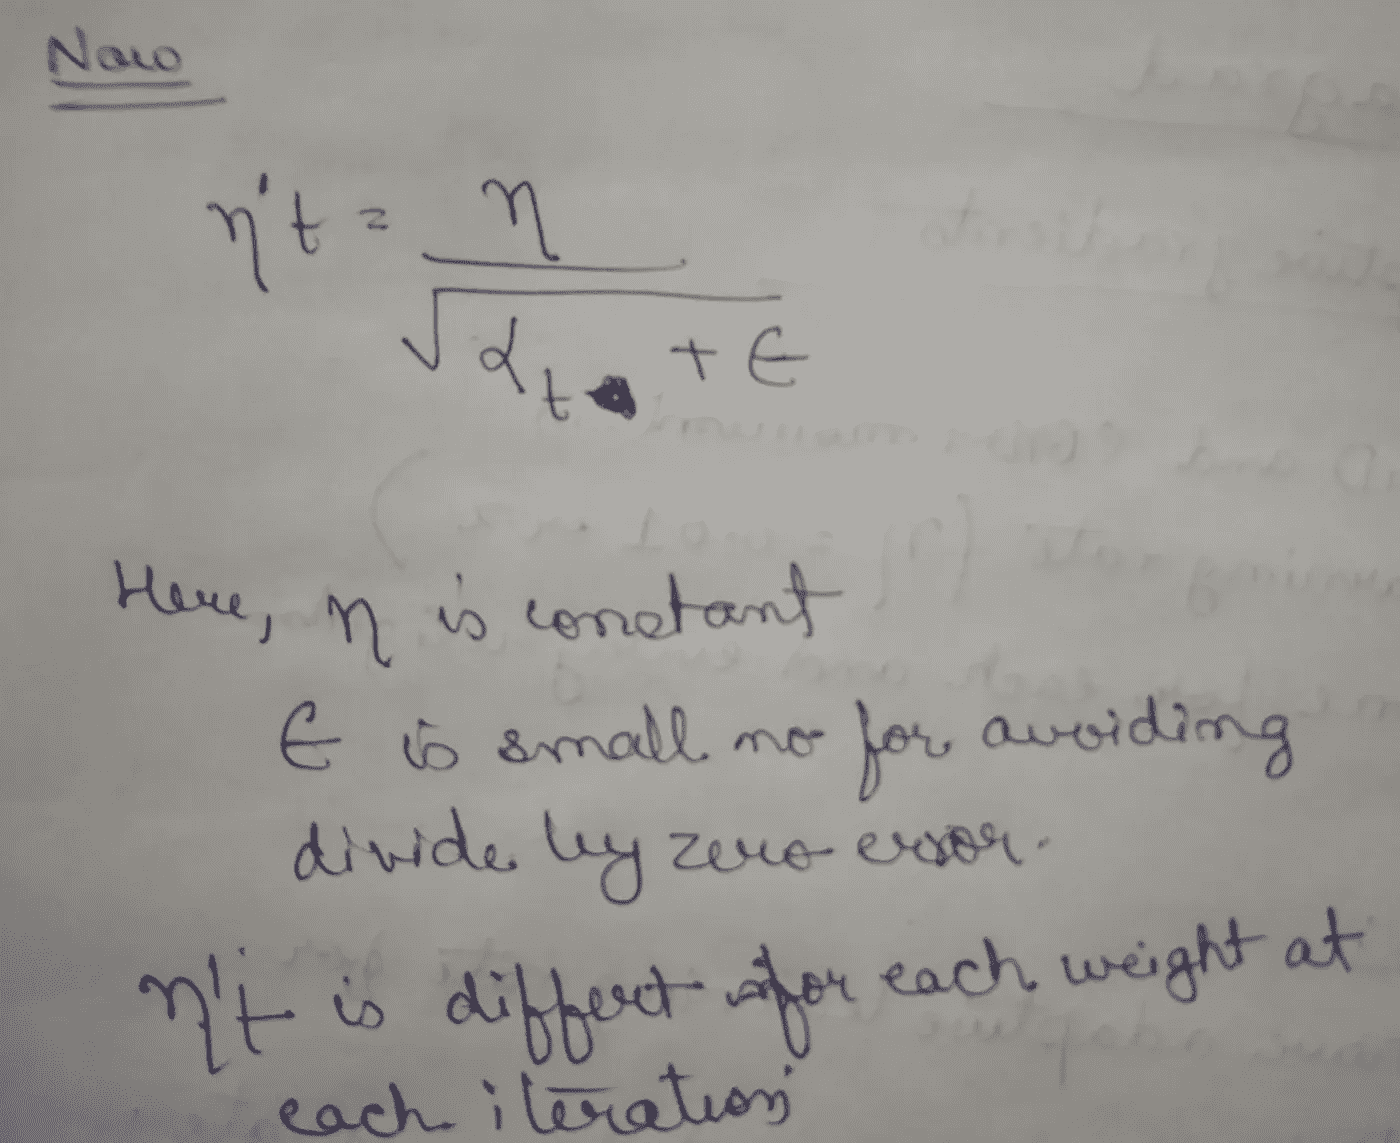 Now
η't = η
√αt + ϵ
Here, η is constant
ϵ is small no for avoiding
divide by zero error.
η't is differt for each weight at
each iteration